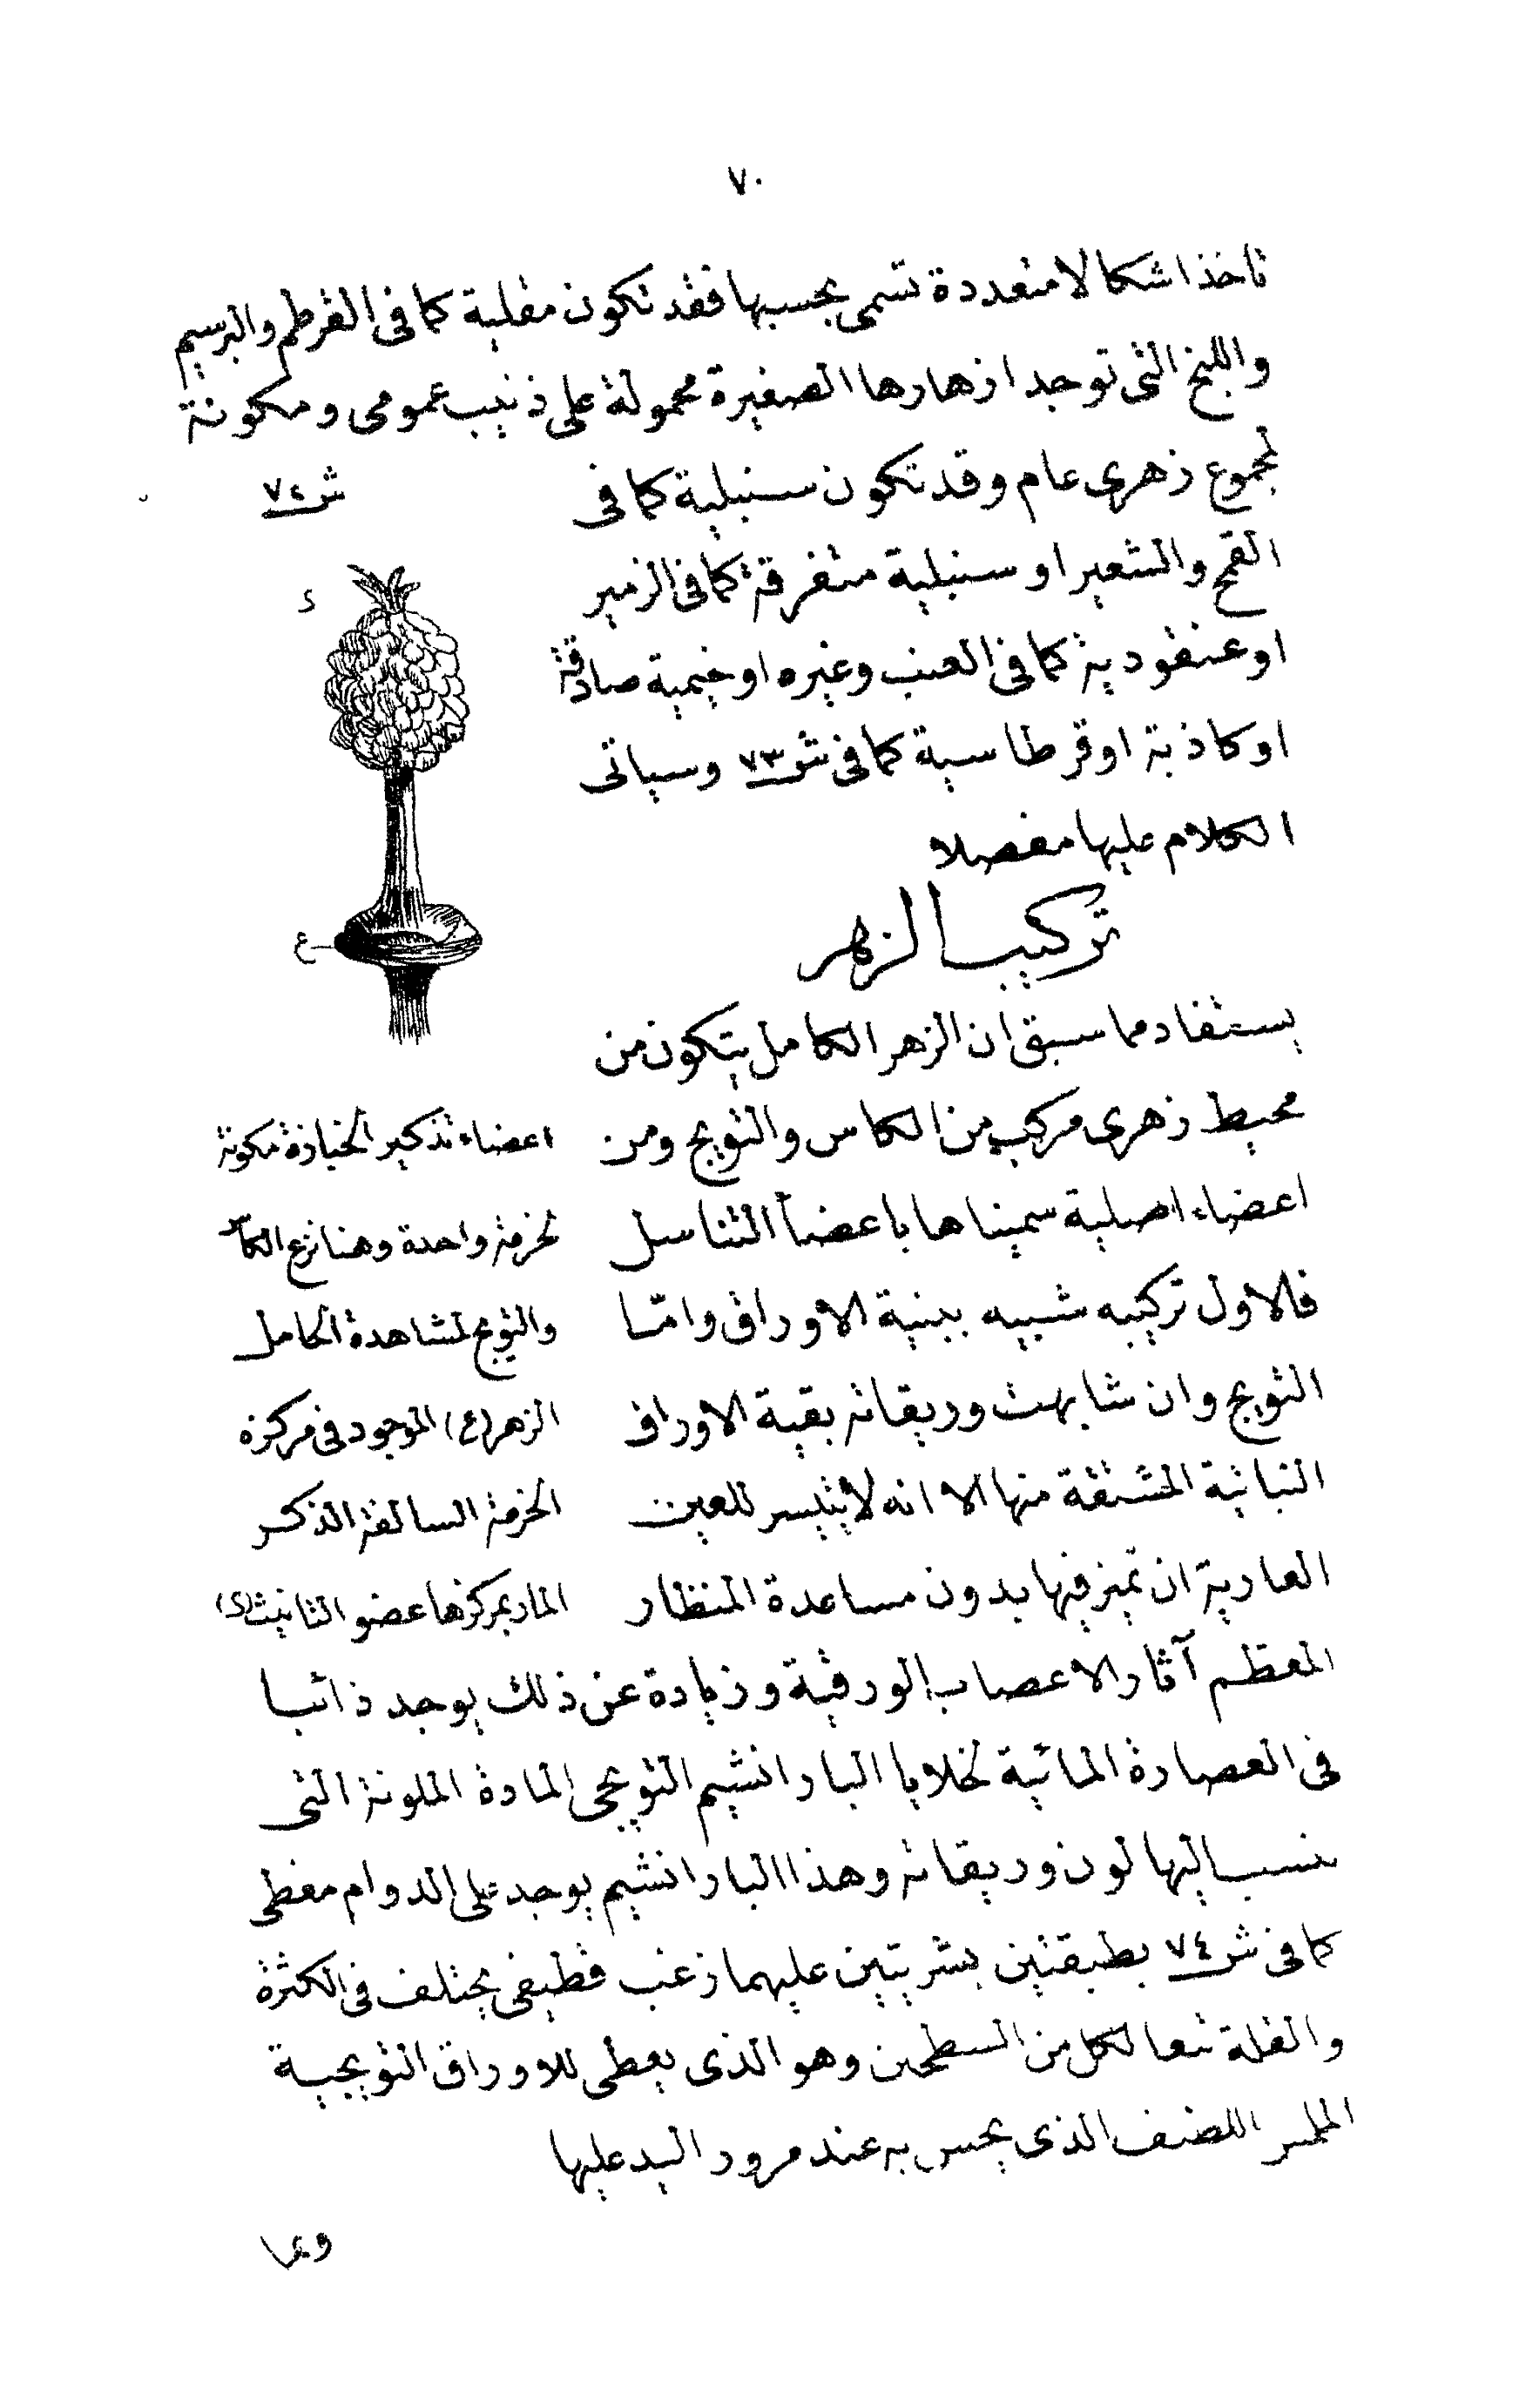 ٧٠
تاخذ اشكالا متعددة تسمى بحسبها فقد تكون مقلية كما فى القرطم والبرسيم
واللبخ التى توجد ازهارها الصغيرة محمولة على ذنيب عمومى ومكونة
لمجموع زهرى عام وقد تكون سنبلية كما فى
القمح والشعير او سنبلية متفرقة كما فى الزمير
او عنقودية كما فى العنب وغيره او خيمية صادقة
او كاذبة او قرطاسية كما فى ش ٧٣ وسياتى
الكلام عليها مفصلا
تركيب الزهر
يستفاد مما سبق ان الزهر الكامل يتكون من
محيط زهرى مركب من الكاس والتويج ومن
اعضاء اصلية سميناها باعضآ التناسل
فالاول تركيبه شبيه ببنية الاوراق وامّا
التويج وان شابهت وريقاته بقية الاوراق
النباتية المشتقة منها الا انه لايتيسر للعين
العارية ان تميز فيها بدون مساعدة المنظار
ش ٧٤
ى
ع
اعضاء تذكير الخبازة مكونة
لحزمة واحدة وهنا نزع الكاس
والتويج لمشاهدة الحامل
الزهر (ع) الموجود فى مركزه
الحزمة السالفة الذكر
المار بمركزها عضو التانيث (ى)
المعظم آثار الاعصاب الورقية وزيادة عن ذلك يوجد ذائبا
فى العصارة المائية لخلايا البارانشيم التويجى المادة الملونة التى
ينسب اليها لون وريقاته وهذا البارانشيم يوجد على الدوام مغطى
كما فى ش ٧٤ بطبقتين بشريتين عليهما زغب قطيفى يختلف فى الكثرة
والقلة تبعا لكل من السطحين وهو الذى يعطى للاوراق التويجية
الملمس اللطيف الذى يحس به عند مرور اليد عليها
وبما